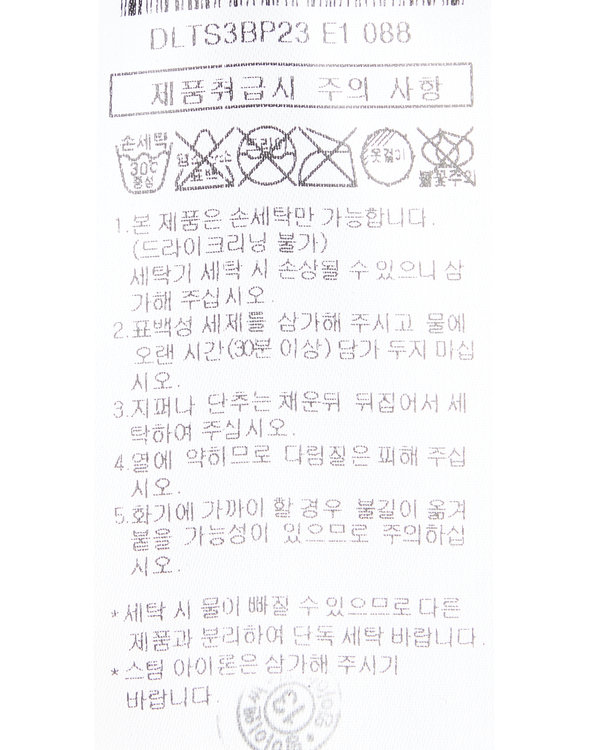 DLTS3BP23 E1 088
제품취급시 주의 사항
손세탁
30℃
중성
염소
표백
드라이
옷걸이
불꽃주의
1.본 제품은 손세탁만 가능합니다.
(드라이크리닝 불가)
세탁기 세탁 시 손상될 수 있으니 삼
가해 주십시오.
2.표백성 세제를 삼가해 주시고 물에
오랜 시간(30분 이상) 담가 두지 마십
시오.
3.지퍼나 단추는 채운뒤 뒤집어서 세
탁하여 주십시오.
4.열에 약하므로 다림질은 피해 주십
시오.
5.화기에 가까이 할 경우 불길이 옮겨
붙을 가능성이 있으므로 주의하십
시오.
*세탁 시 물이 빠질 수 있으므로 다른
제품과 분리하여 단독 세탁 바랍니다.
*스팀 아이론은 삼가해 주시기
바랍니다.
13